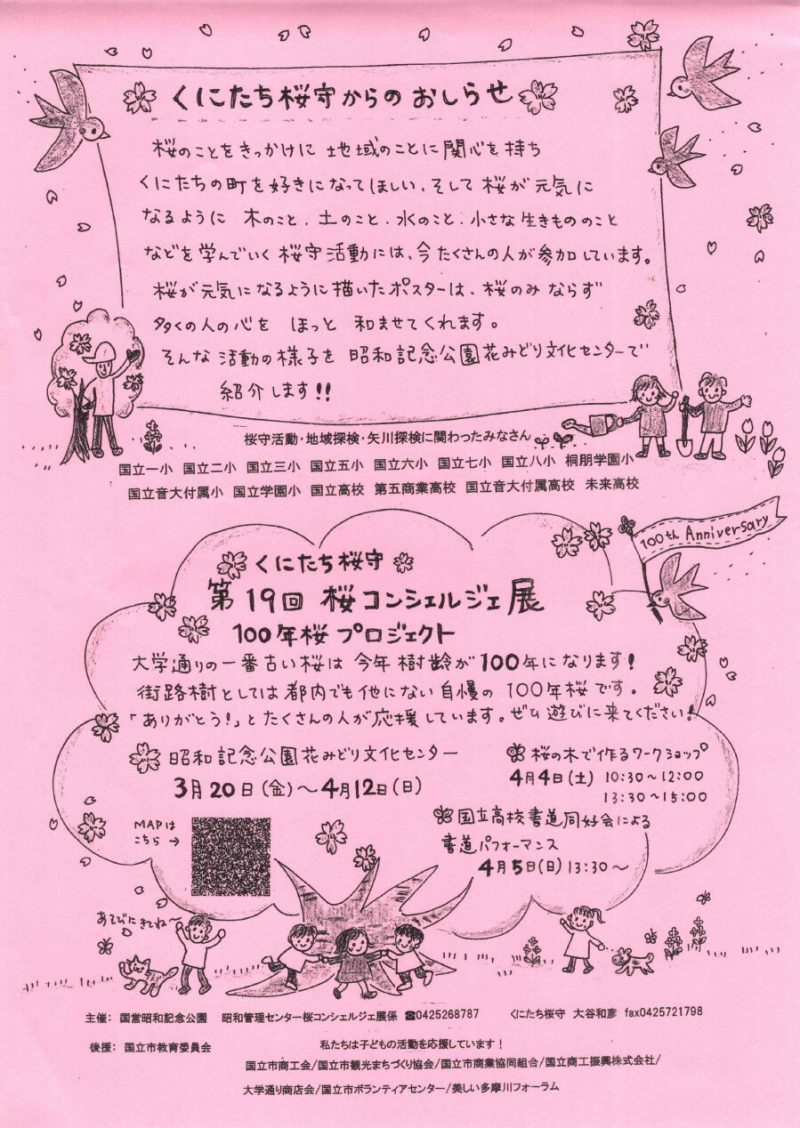 くにたち桜守からの おしらせ
桜のことをきっかけに 地域のことに関心を持ち
くにたちの町を好きになってほしい、そして桜が元気に
なるように 木のこと、土のこと、水のこと、小さな生きもののこと
などを学んでいく桜守活動には、今たくさんの人が参加しています。
桜が元気になるように描いたポスターは、桜のみならず
多くの人の心を ほっと 和ませてくれます。
そんな活動の様子を 昭和記念公園花みどり文化センターで
紹介します!!
桜守活動・地域探検・矢川探検に関わったみなさん
国立一小 国立二小 国立三小 国立五小 国立六小 国立七小 国立八小 桐朋学園小
国立音大付属小 国立学園小 国立高校 第五商業高校 国立音大付属高校 未来高校
100th Anniversary
くにたち桜守
第19回 桜コンシェルジェ展
100年桜プロジェクト
大学通りの一番古い桜は 今年 樹齢が100年になります!
街路樹としては都内でも他にない自慢の 100年桜です。
「ありがとう!」とたくさんの人が応援しています。ぜひ遊びに来てください!
昭和記念公園花みどり文化センター
3月20日(金)〜4月12日(日)
桜の木で作るワークショップ
4月4日(土) 10:30〜12:00
13:30〜15:00
国立高校書道同好会による
書道パフォーマンス
4月5日(日)13:30〜
MAPは
こちら→
あそびにきてね〜
主催: 国営昭和記念公園 昭和管理センター桜コンシェルジェ展係 ☎0425268787 くにたち桜守 大谷和彦 fax0425721798
後援: 国立市教育委員会 私たちは子どもの活動を応援しています!
国立市商工会/国立市観光まちづくり協会/国立市商業協同組合/国立商工振興株式会社/
大学通り商店会/国立市ボランティアセンター/美しい多摩川フォーラム